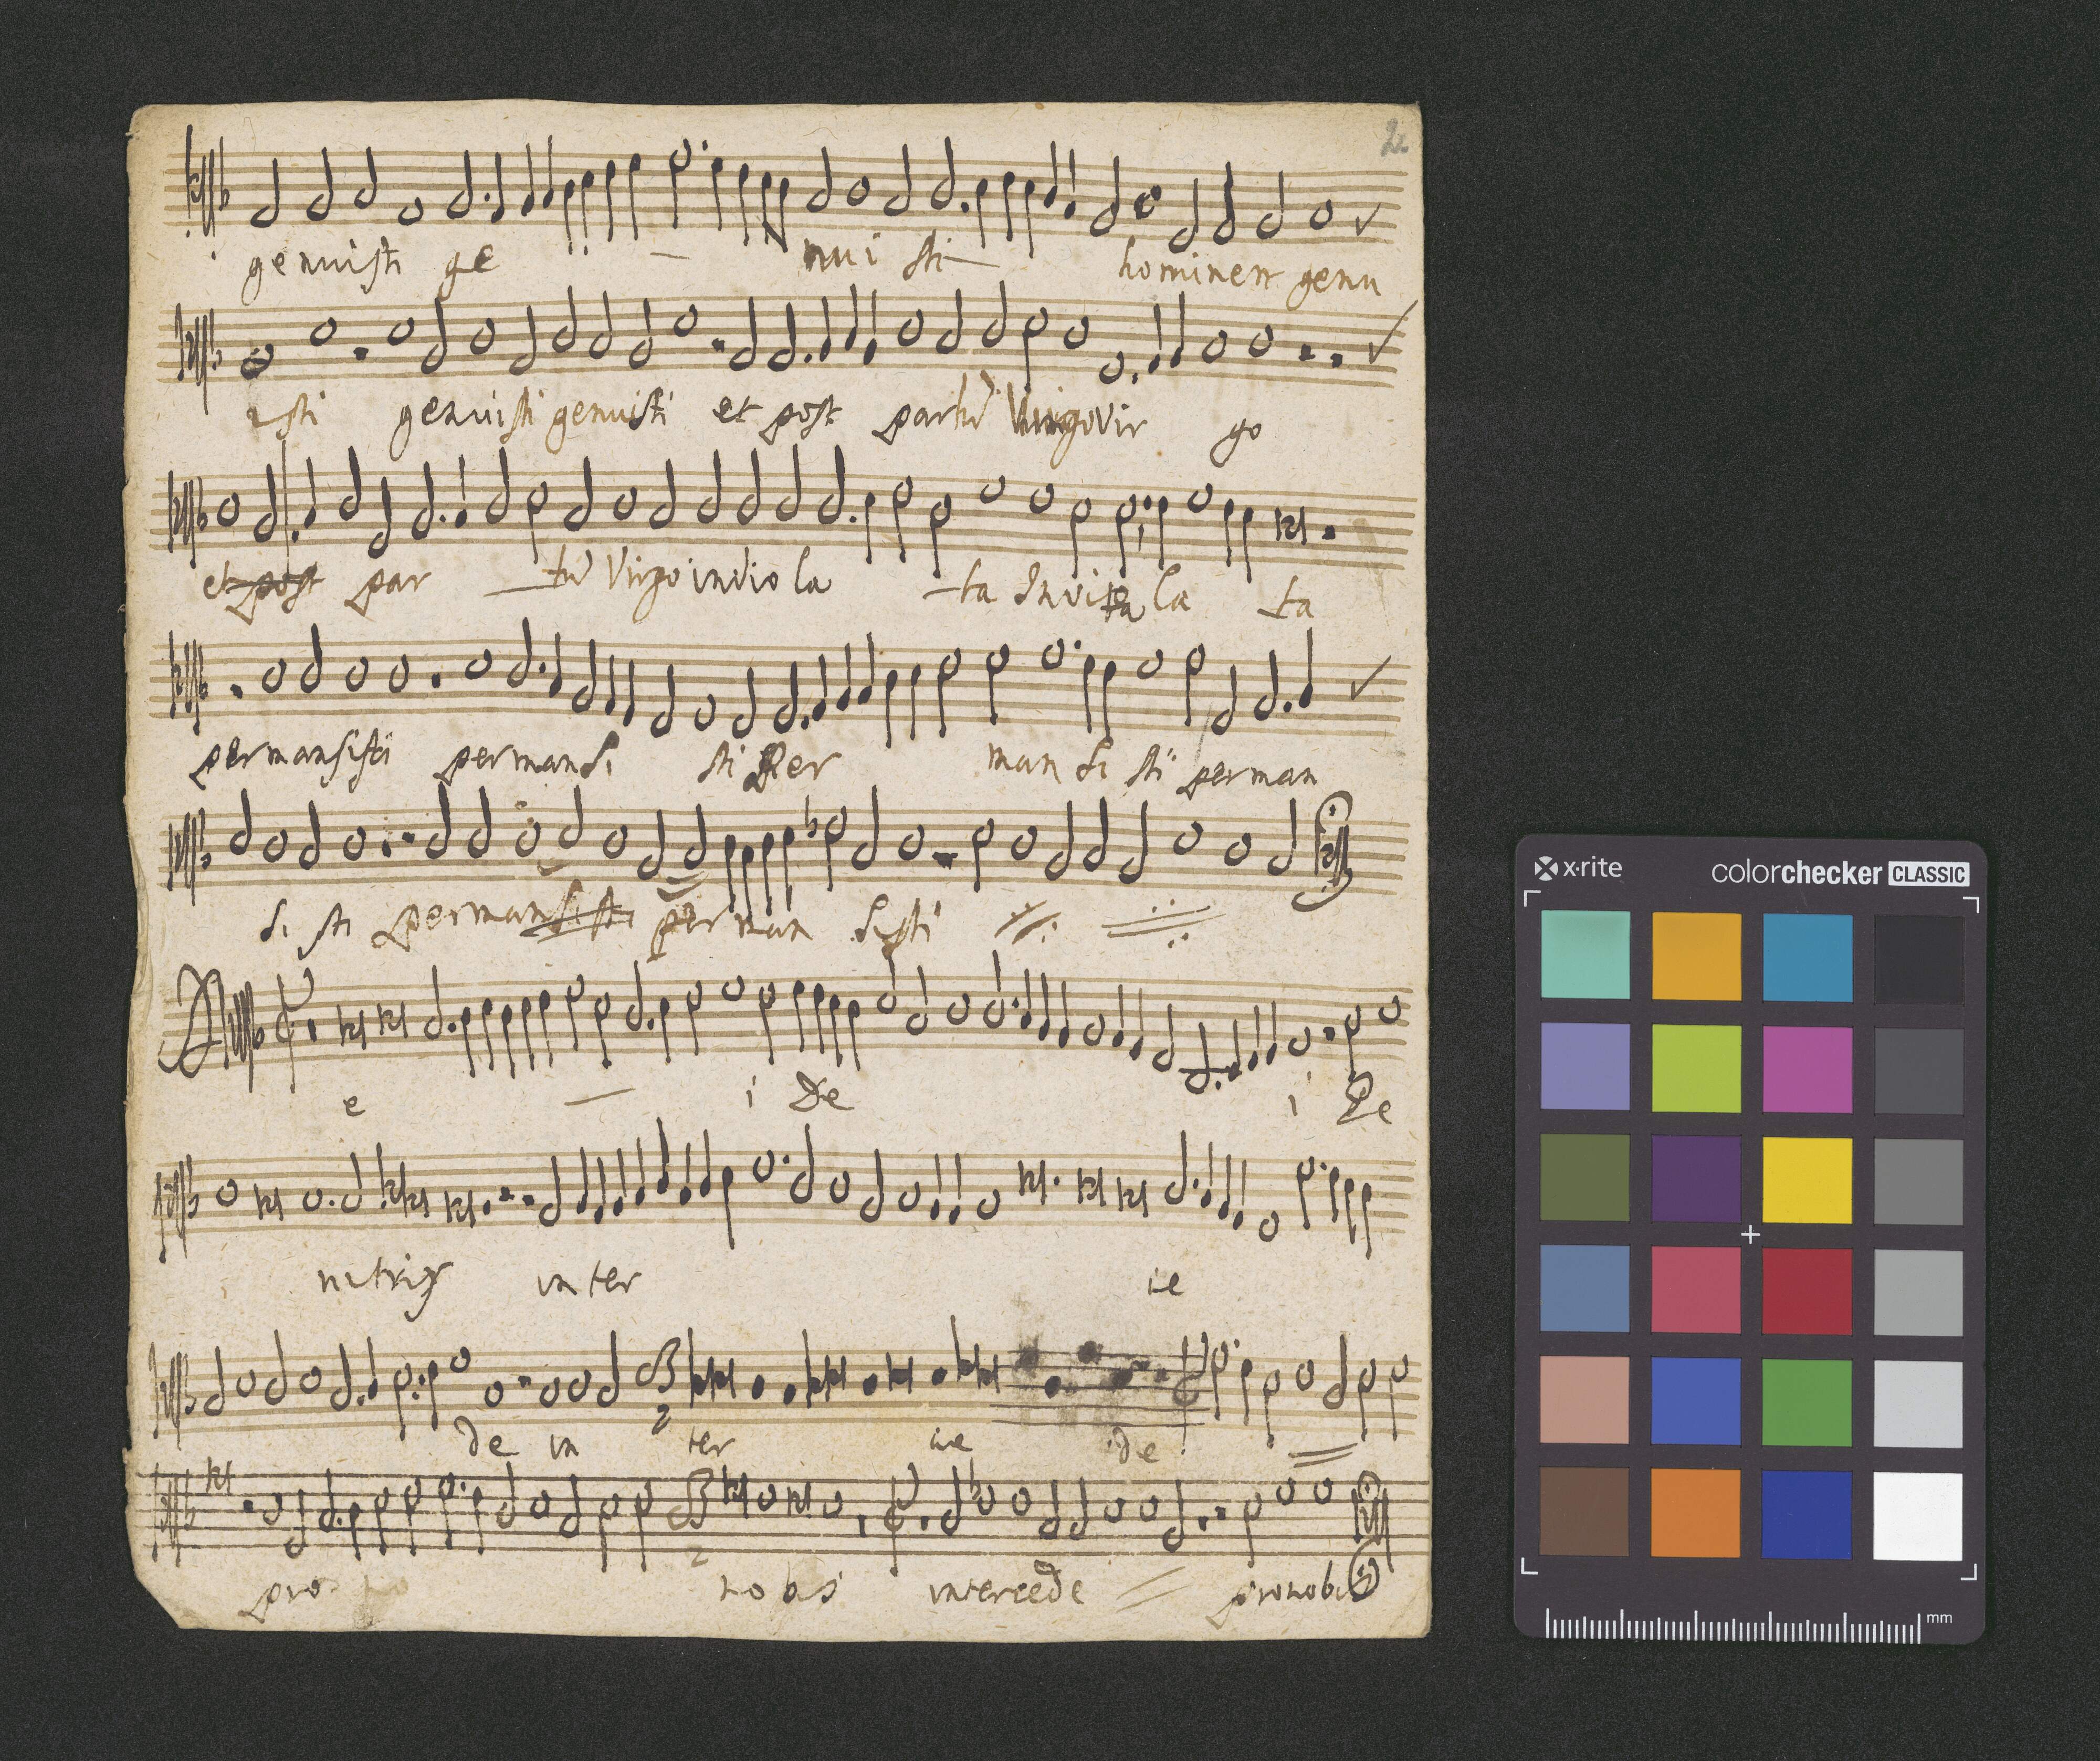 22
genuisti ge - nui sti - hominem genu
isti genuisti genuisti et post partū Virgo Vir go
et post par - tū Virgo invio la - ta Invi la ta
permansisti permansi sti Per man si sti perman
si sti permansisti per man sisti
e - i De i De
nitrix inter ce
de in ter ce de
pro nobis intercede pronobis
x·rite colorchecker CLASSIC
mm